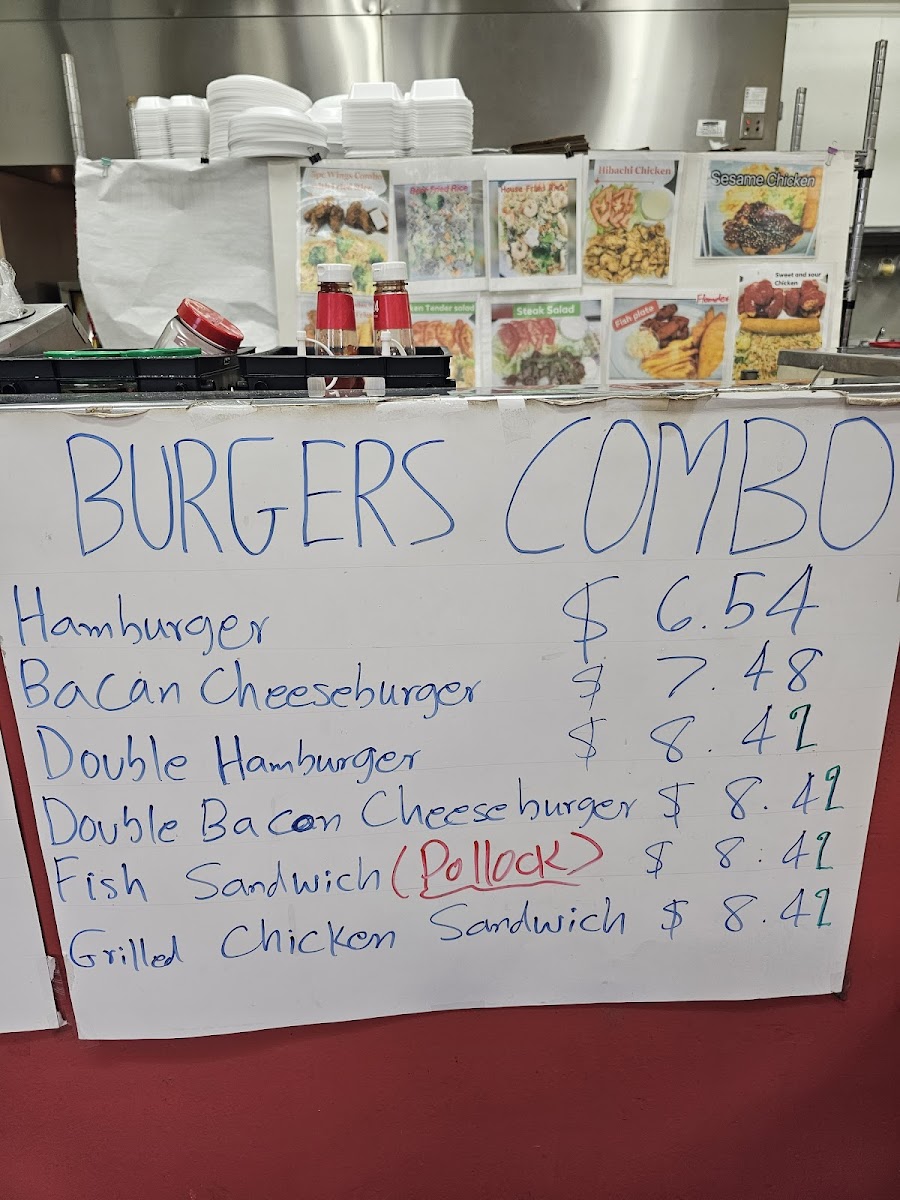 Hibachi Chicken
Sesame Chicken
House Fried Rice
Sweet and sour
Chicken
Tender salad
Steak Salad
Fish plate
BURGERS COMBO
Hamburger $ 6.54
Bacan Cheeseburger $ 7.48
Double Hamburger $ 8.42
Double Bacon Cheeseburger $ 8.42
Fish Sandwich (Pollock) $ 8.42
Grilled Chicken Sandwich $ 8.42